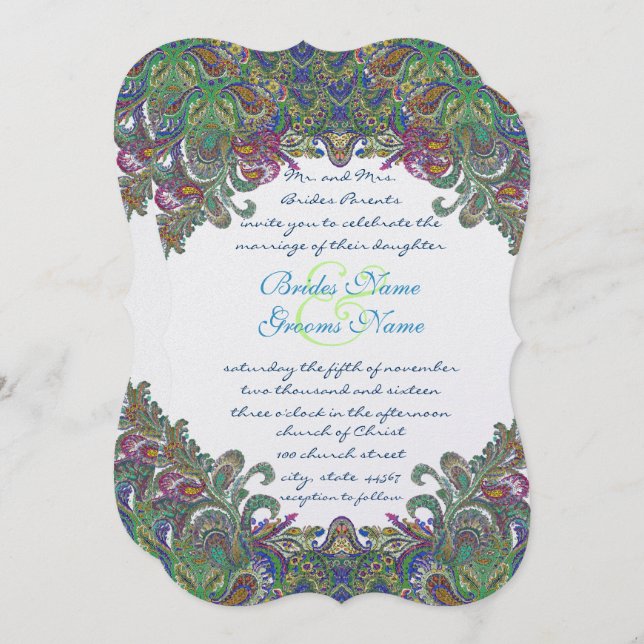 Mr. and Mrs.
Brides Parents
invite you to celebrate the
marriage of their daughter
Brides Name
&
Grooms Name
saturday the fifth of november
two thousand and sixteen
three o'clock in the afternoon
church of Christ
100 church street
city, state 44567
reception to follow